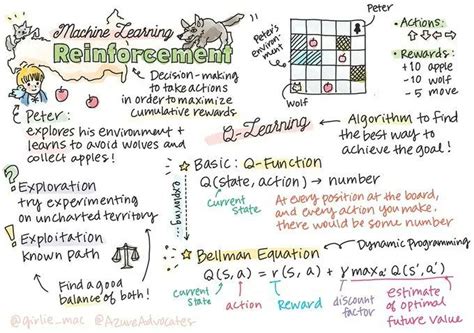 Machine Learning
Reinforcement
Decision-making
to take actions
in order to maximize
cumulative rewards
Peter:
explores his environment +
learns to avoid wolves and
collect apples!
Exploration
try experimenting
on unchartered territory
Exploitation
known path
Find a good
balance of both!
@girlie_mac @AzureAdvocates
Peter
Peter's
environment
Wolf
• Actions:
⇧⇩⇦⇨
• Rewards:
+10 apple
-10 wolf
-5 move
Q-Learning
Algorithm to find
the best way to
achieve the goal!
exploring...
Basic: Q-Function
Q(state, action) → number
current
state
At every position at the board,
and every action you make,
there would be some number
Bellman Equation
Dynamic Programming
Q(s, a) = r(s, a) + γ maxₐ' Q(s', a')
current
state
action
Reward
discount
factor
estimate
of optimal
future value